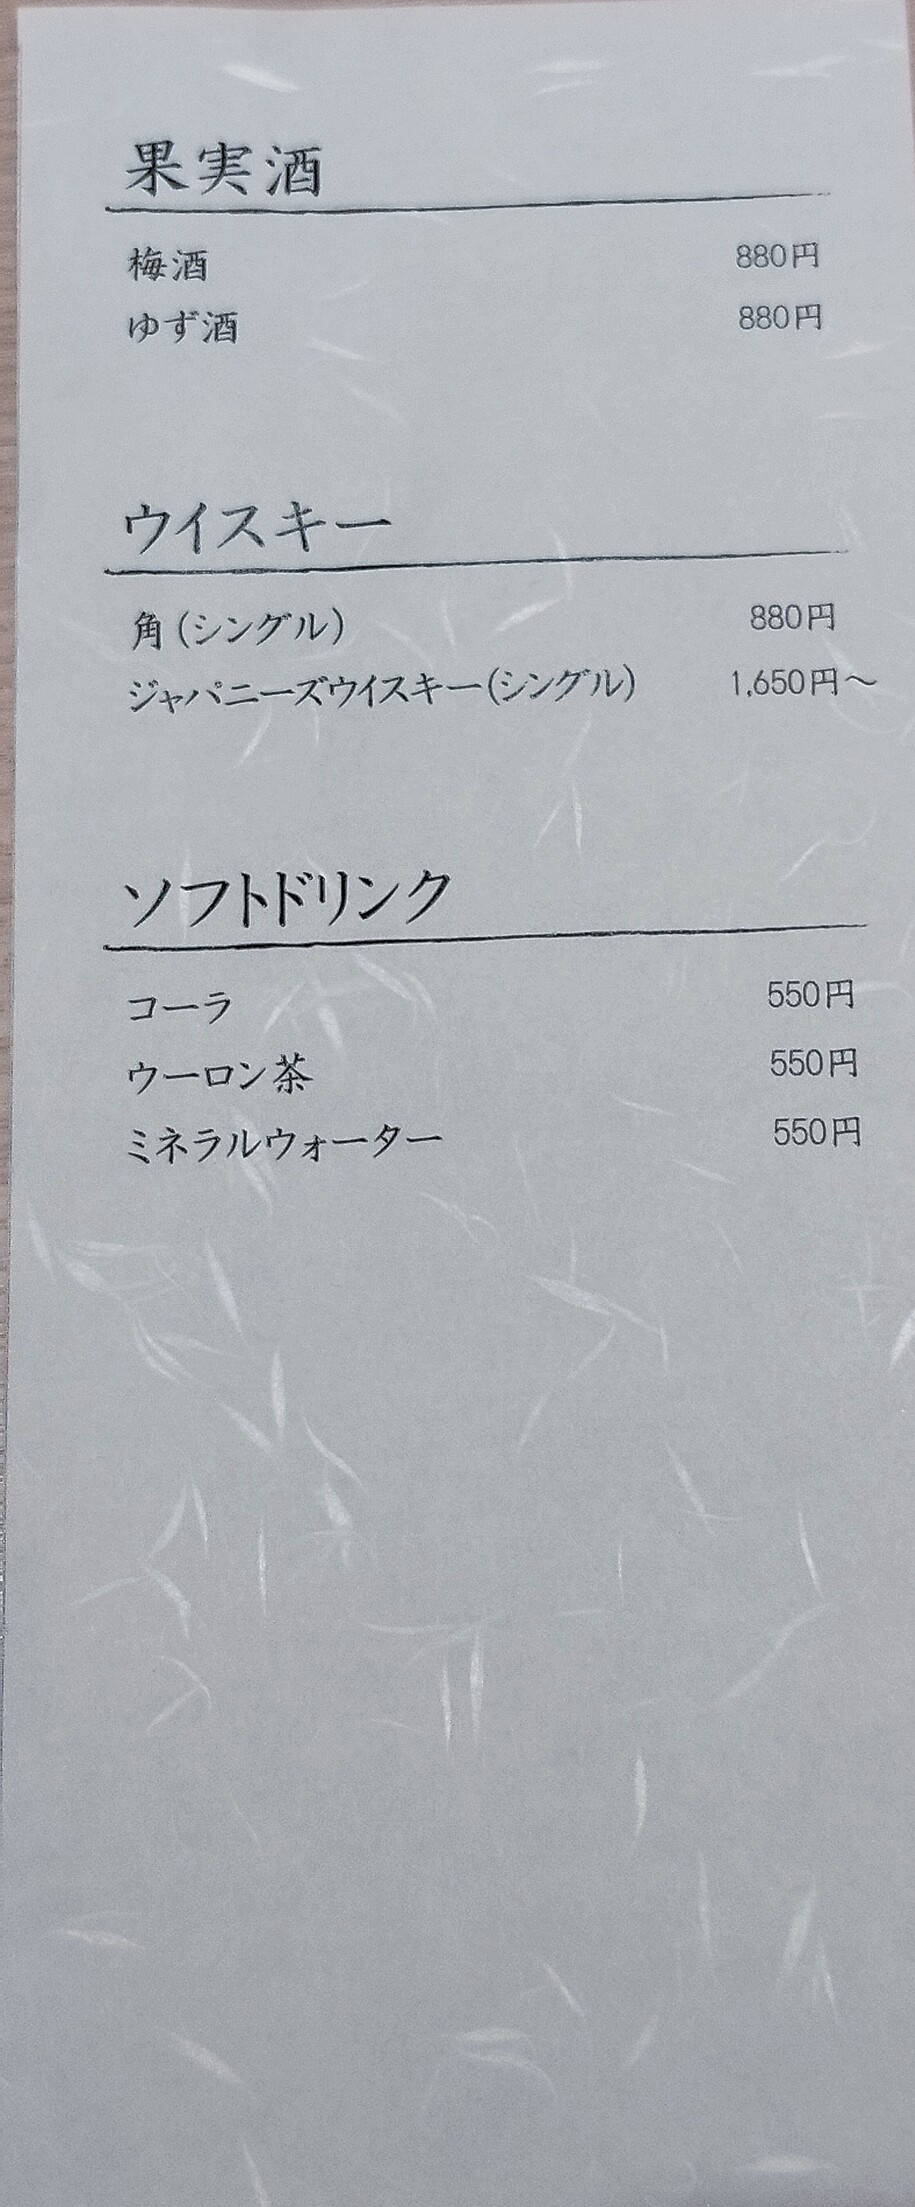 果実酒
梅酒 880円
ゆず酒 880円
ウイスキー
角(シングル) 880円
ジャパニーズウイスキー(シングル) 1,650円〜
ソフトドリンク
コーラ 550円
ウーロン茶 550円
ミネラルウォーター 550円